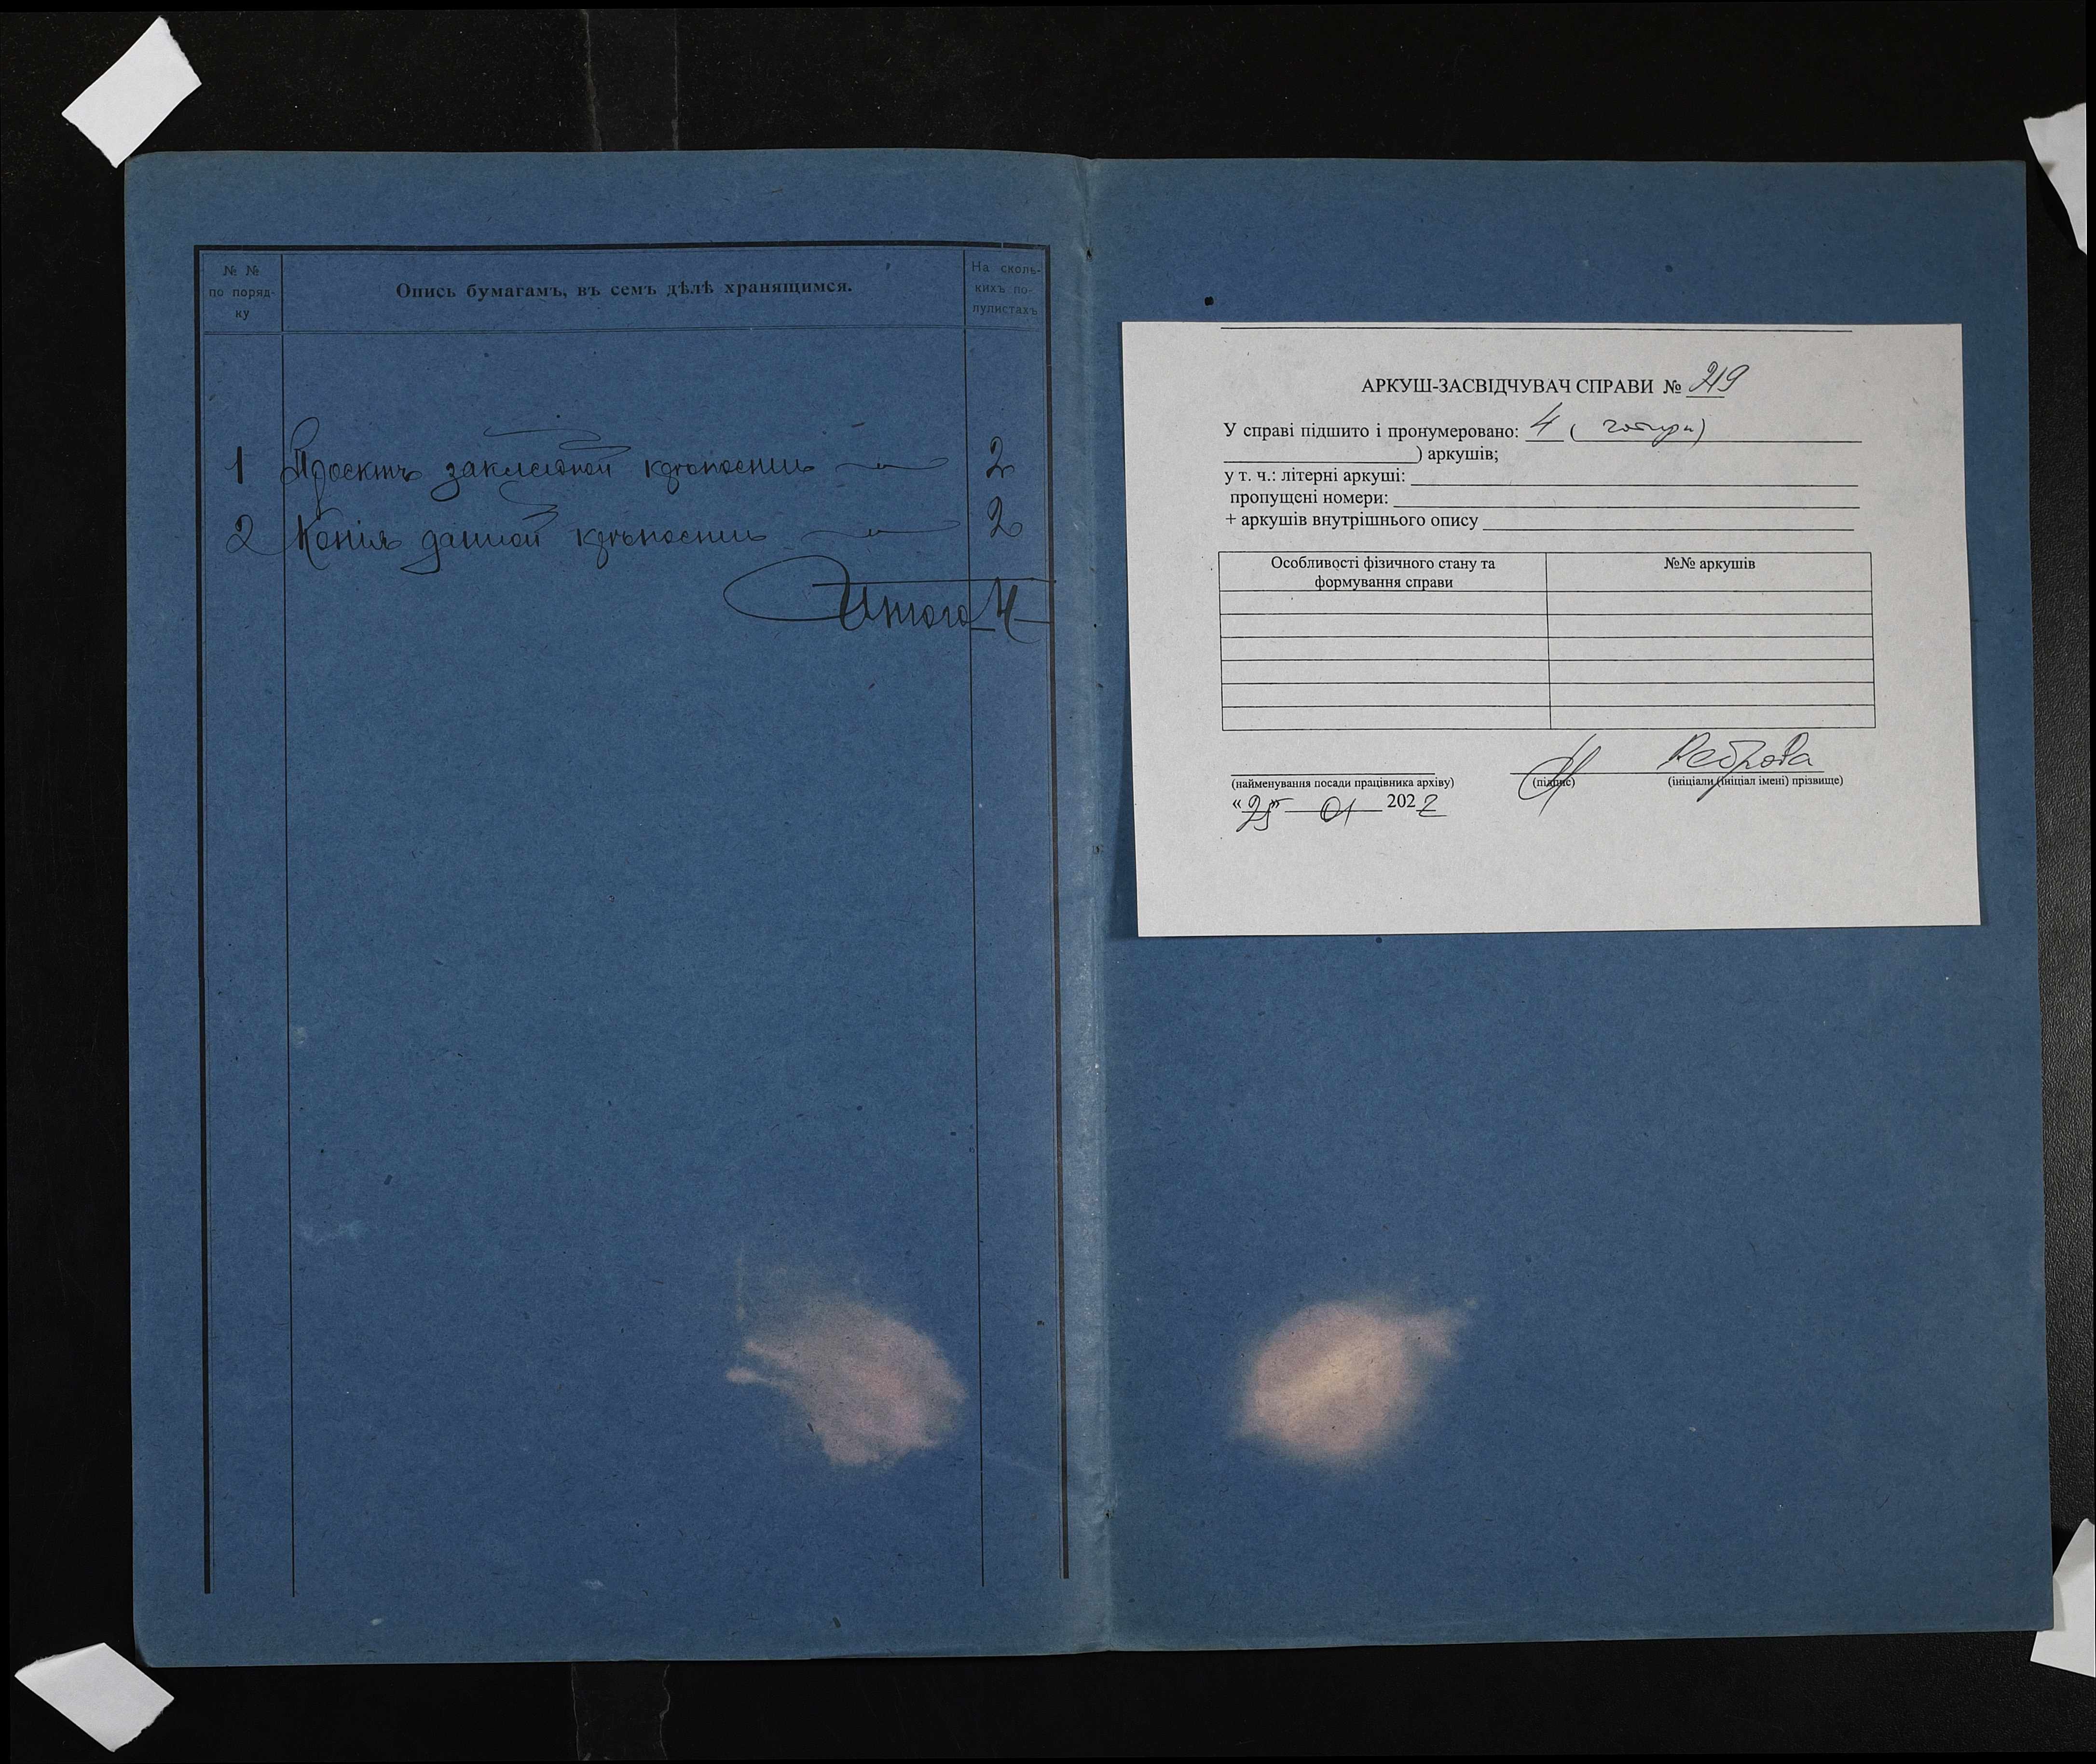 № №
по поряд-
ку
Опись бумагамъ, въ семъ дѣлѣ хранящимся.
На сколь-
кихъ по-
лулистахъ
1 Проектъ закладной крѣпости 2
2 Копія данной крѣпости 2
Итого 4
АРКУШ-ЗАСВІДЧУВАЧ СПРАВИ № 219
У справі підшито і пронумеровано: 4 ( чотири)
) аркушів;
у т. ч.: літерні аркуші:
пропущені номери:
+ аркушів внутрішнього опису
Особливості фізичного стану та
формування справи
№№ аркушів
(найменування посади працівника архіву) (підпис) (ініціали (ініціал імені) прізвище)
« 25 » 01 2022